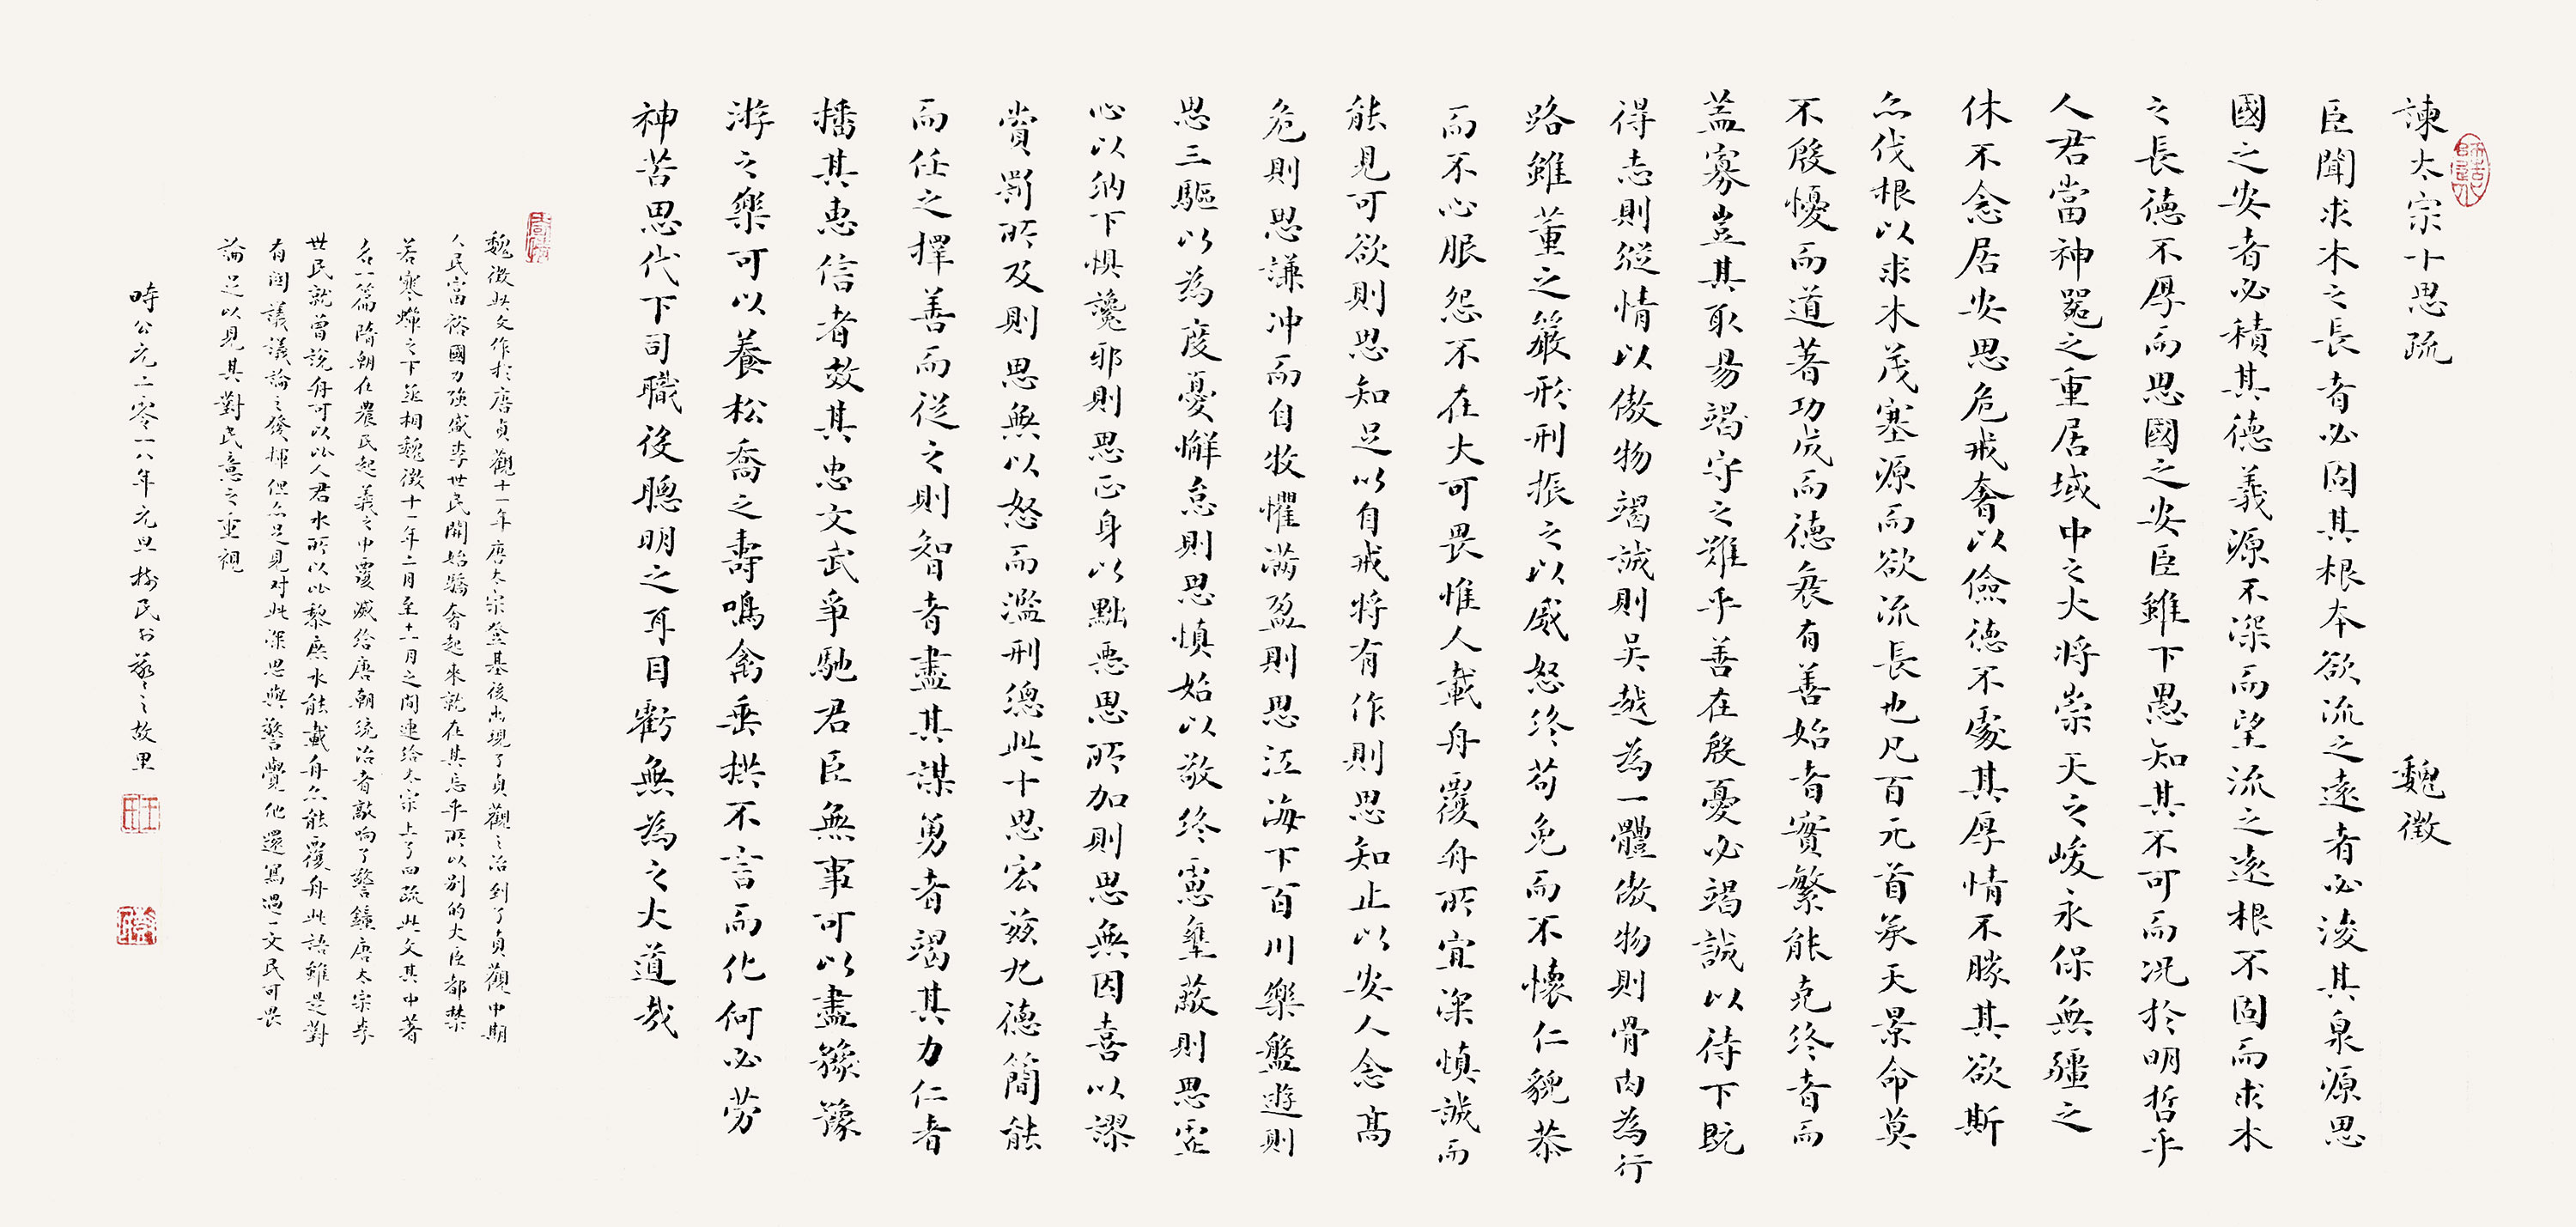 諫太宗十思疏 魏徵
臣聞求木之長者必固其根本欲流之遠者必浚其泉源思
國之安者必積其德義源不深而望流之遠根不固而求木
之長德不厚而思國之安臣雖下愚知其不可而況於明哲乎
人君當神器之重居域中之大將崇天之峻永保無疆之
休不念居安思危戒奢以儉德不處其厚情不勝其欲斯
亦伐根以求木茂塞源而欲流長也凡百元首承天景命莫
不殷憂而道著功成而德衰有善始者實繁能克終者而
蓋寡豈其取易竭守之難乎善在殷憂必竭誠以待下既
得志則縱情以傲物竭誠則吳越為一體傲物則骨肉為行
路雖董之嚴形刑振之以威怒終苟免而不懷仁貌恭
而不心服怨不在大可畏惟人載舟覆舟所宜深慎誠而
能見可欲則思知足以自戒將有作則思知止以安人念高
危則思謙沖而自牧懼滿盈則思江海下百川樂盤遊則
思三驅以為度憂懈怠則思慎始以敬終慮壅蔽則思虛
心以納下懼讒邪則思正身以黜惡思所加則思無因喜以謬
賞罰所及則思無以怒而濫刑總此十思宏茲九德簡能
而任之擇善而從之則智者盡其謀勇者竭其力仁者
播其惠信者效其忠文武爭馳君臣無事可以盡豫豫
游之樂可以養松喬之壽鳴禽垂拱不言而化何必勞
神苦思代下司職後聰明之耳目虧無為之大道哉
魏徵此文作於唐貞觀十一年唐太宗登基後出現了貞觀之治到了貞觀中期
人民富裕國力強盛李世民開始驕奢起來就在其忘乎所以別的大臣都禁
若寒蟬之下丞相魏徵十一年二月至十一月之間連給太宗上了四疏此文其中著
名一篇隋朝在農民起義之中覆滅給唐朝統治者敲响了警鐘唐太宗李
世民就曾說舟可以比人君水所以比黎庶水能載舟亦能覆舟此語雖是對
有關議議論之發揮但亦足見对此深思與警覺他還寫過一文民可畏
論足以見其對民意之重視
時公元二零一八年元旦樹民書藝之故里